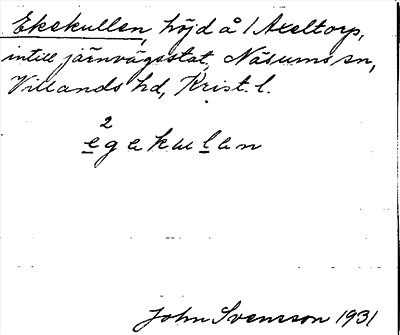 Ekekullen, höjd å 1 Axeltorp,
intill järnvägsstat, Näsums sn,
Villands hd, Krist. l.
2
egekullan
John Svensson 1931